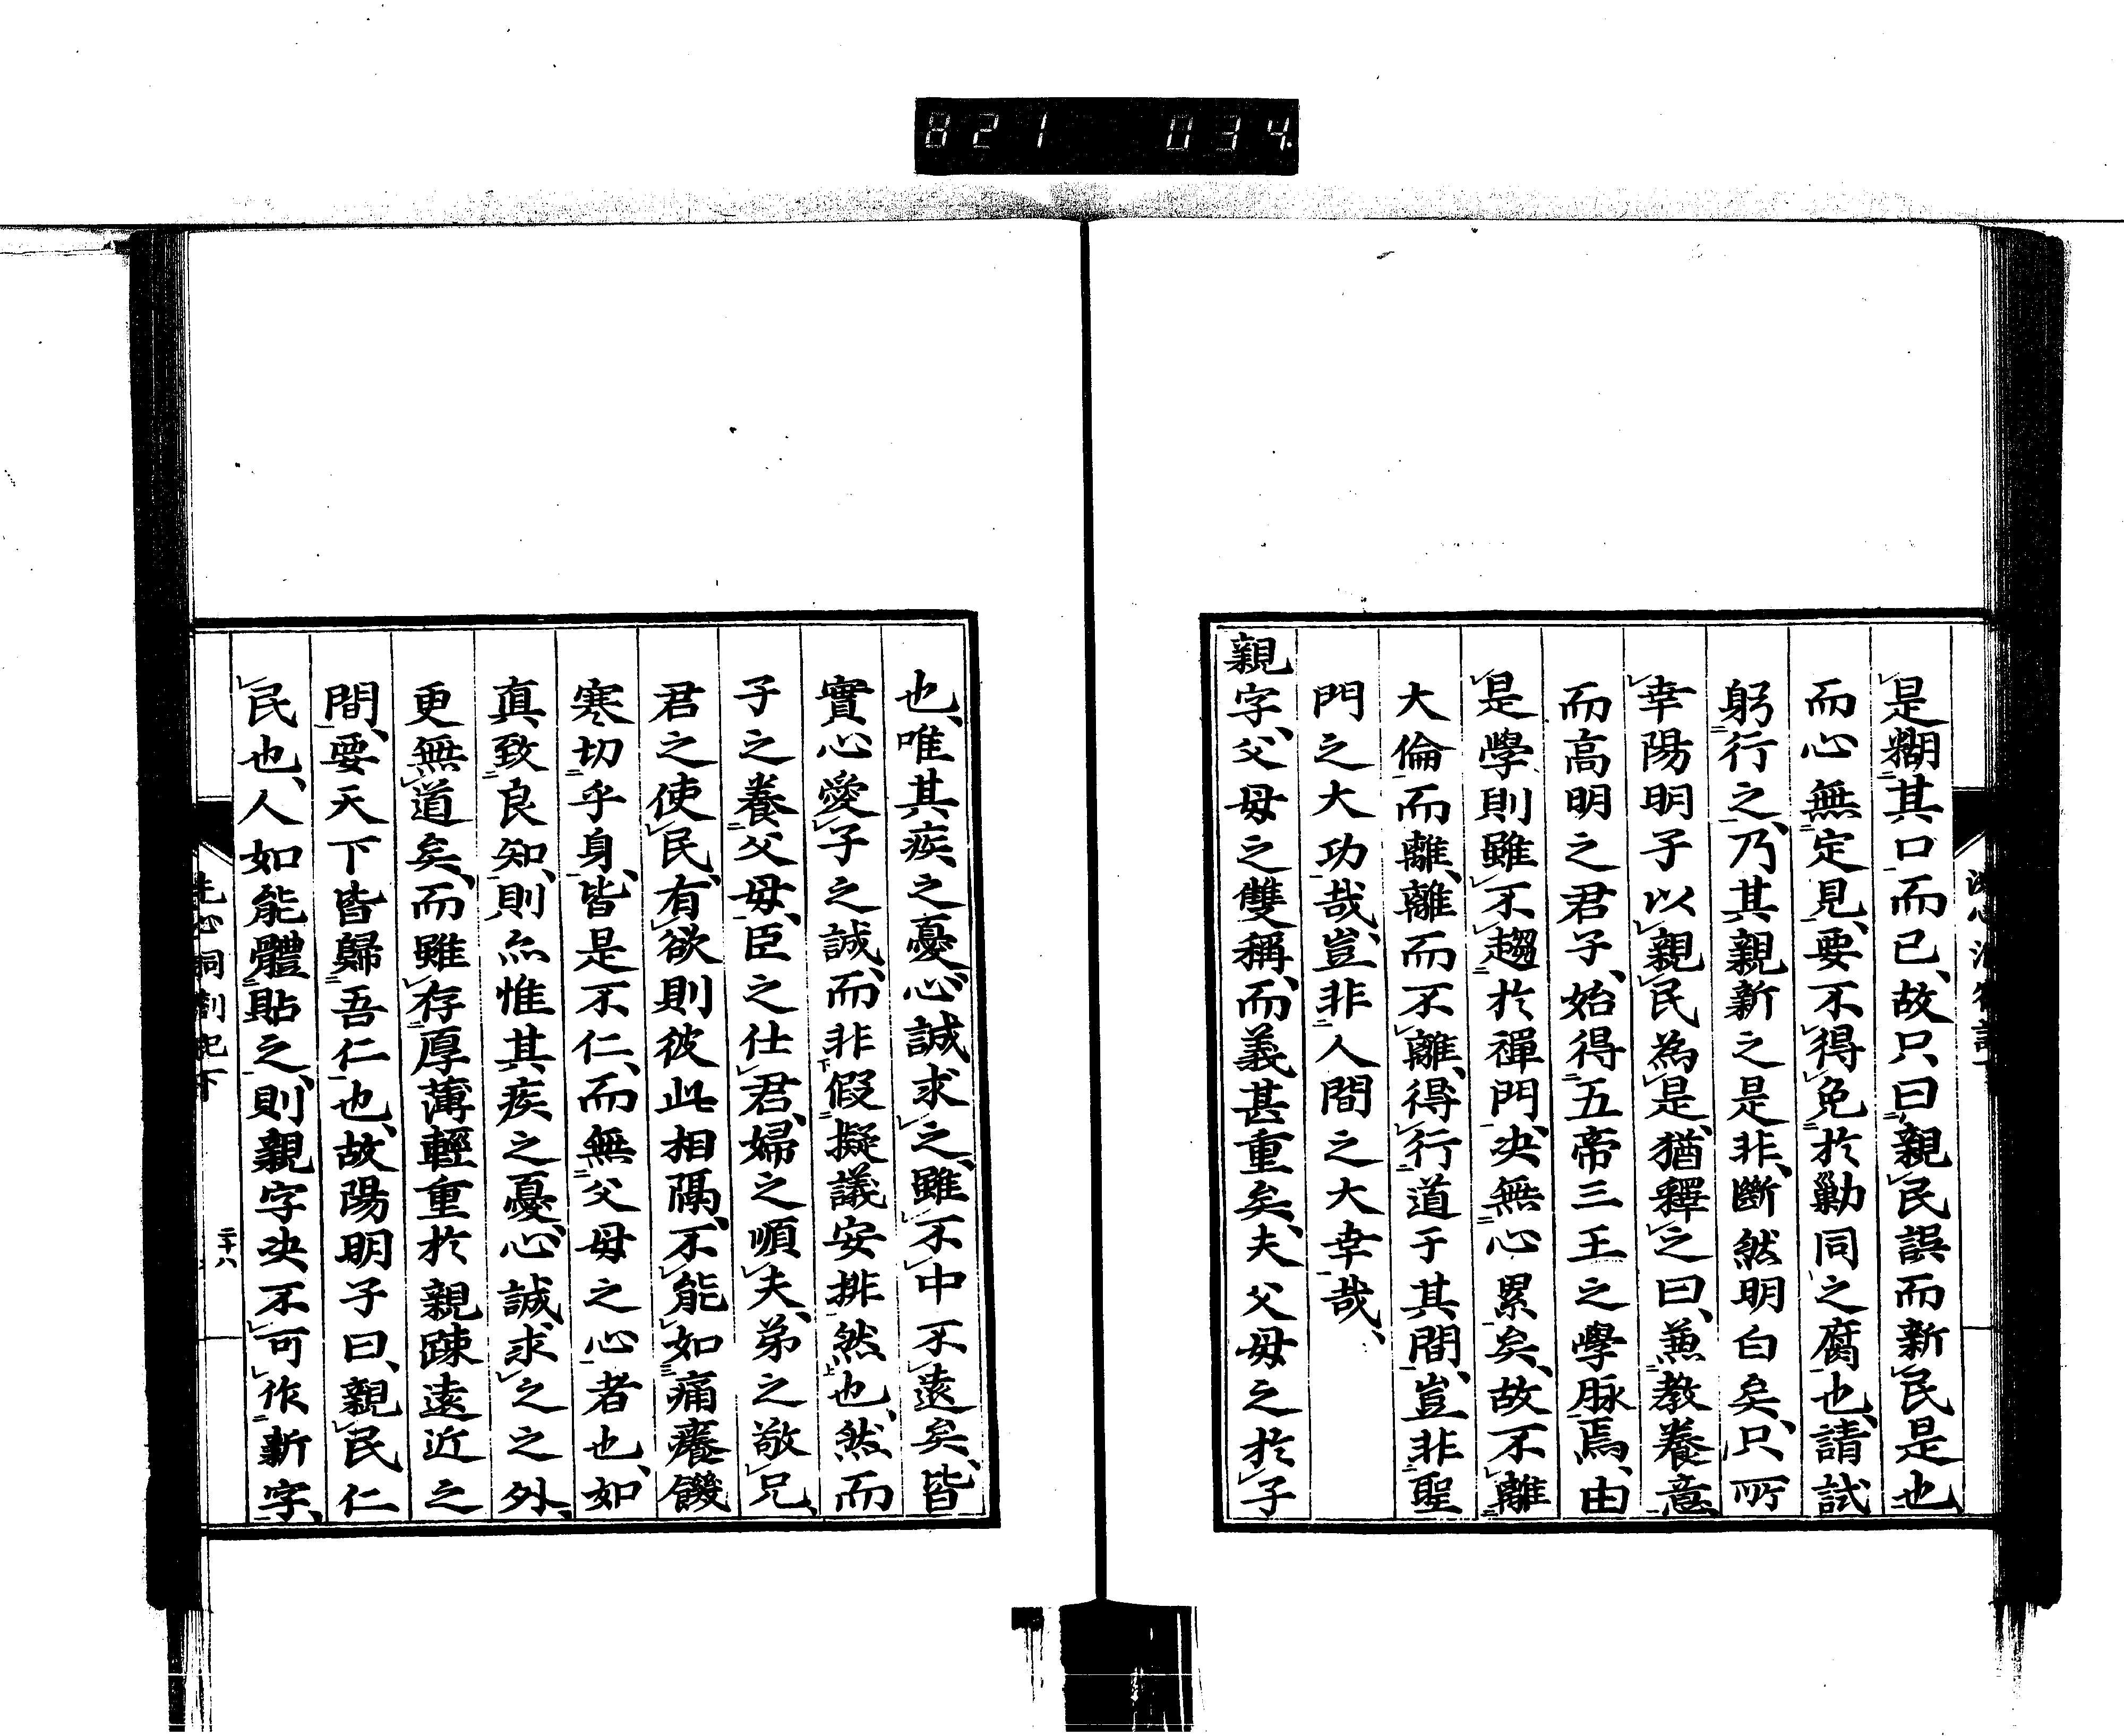 821 034.
是糊其口而已、故只曰親民誤而新民是也
而心無定見、要不得免於勦同之腐也、請試
躬行之、乃其親新之是非、斷然明白矣、只所
幸陽明子以親民為是、猶釋之曰、兼教養意
而高明之君子、始得五帝三王之學脉焉、由
是學則雖不趨於禪門、决無心累矣、故不離
大倫而離、離而不離、得行道于其間、豈非聖
門之大功哉、豈非人間之大幸哉、
親字、父母之雙稱、而義甚重矣、夫父母之於子
也、唯其疾之憂、心誠求之、雖不中不遠矣、皆
實心愛子之誠、而非假擬議安排然也、然而
子之養父母、臣之仕君、婦之順夫、弟之敬兄、
君之使民、有欲則彼此相隔、不能如痛癢饑
寒切乎身、皆是不仁、而無父母之心者也、如
真致良知、則亦惟其疾之憂、心誠求之之外、
更無道矣、而雖存厚薄輕重於親踈遠近之
間、要天下皆歸吾仁也、故陽明子曰、親民仁
民也、人如能體貼之、則親字决不可作新字、
洗心洞劄記下
二十八